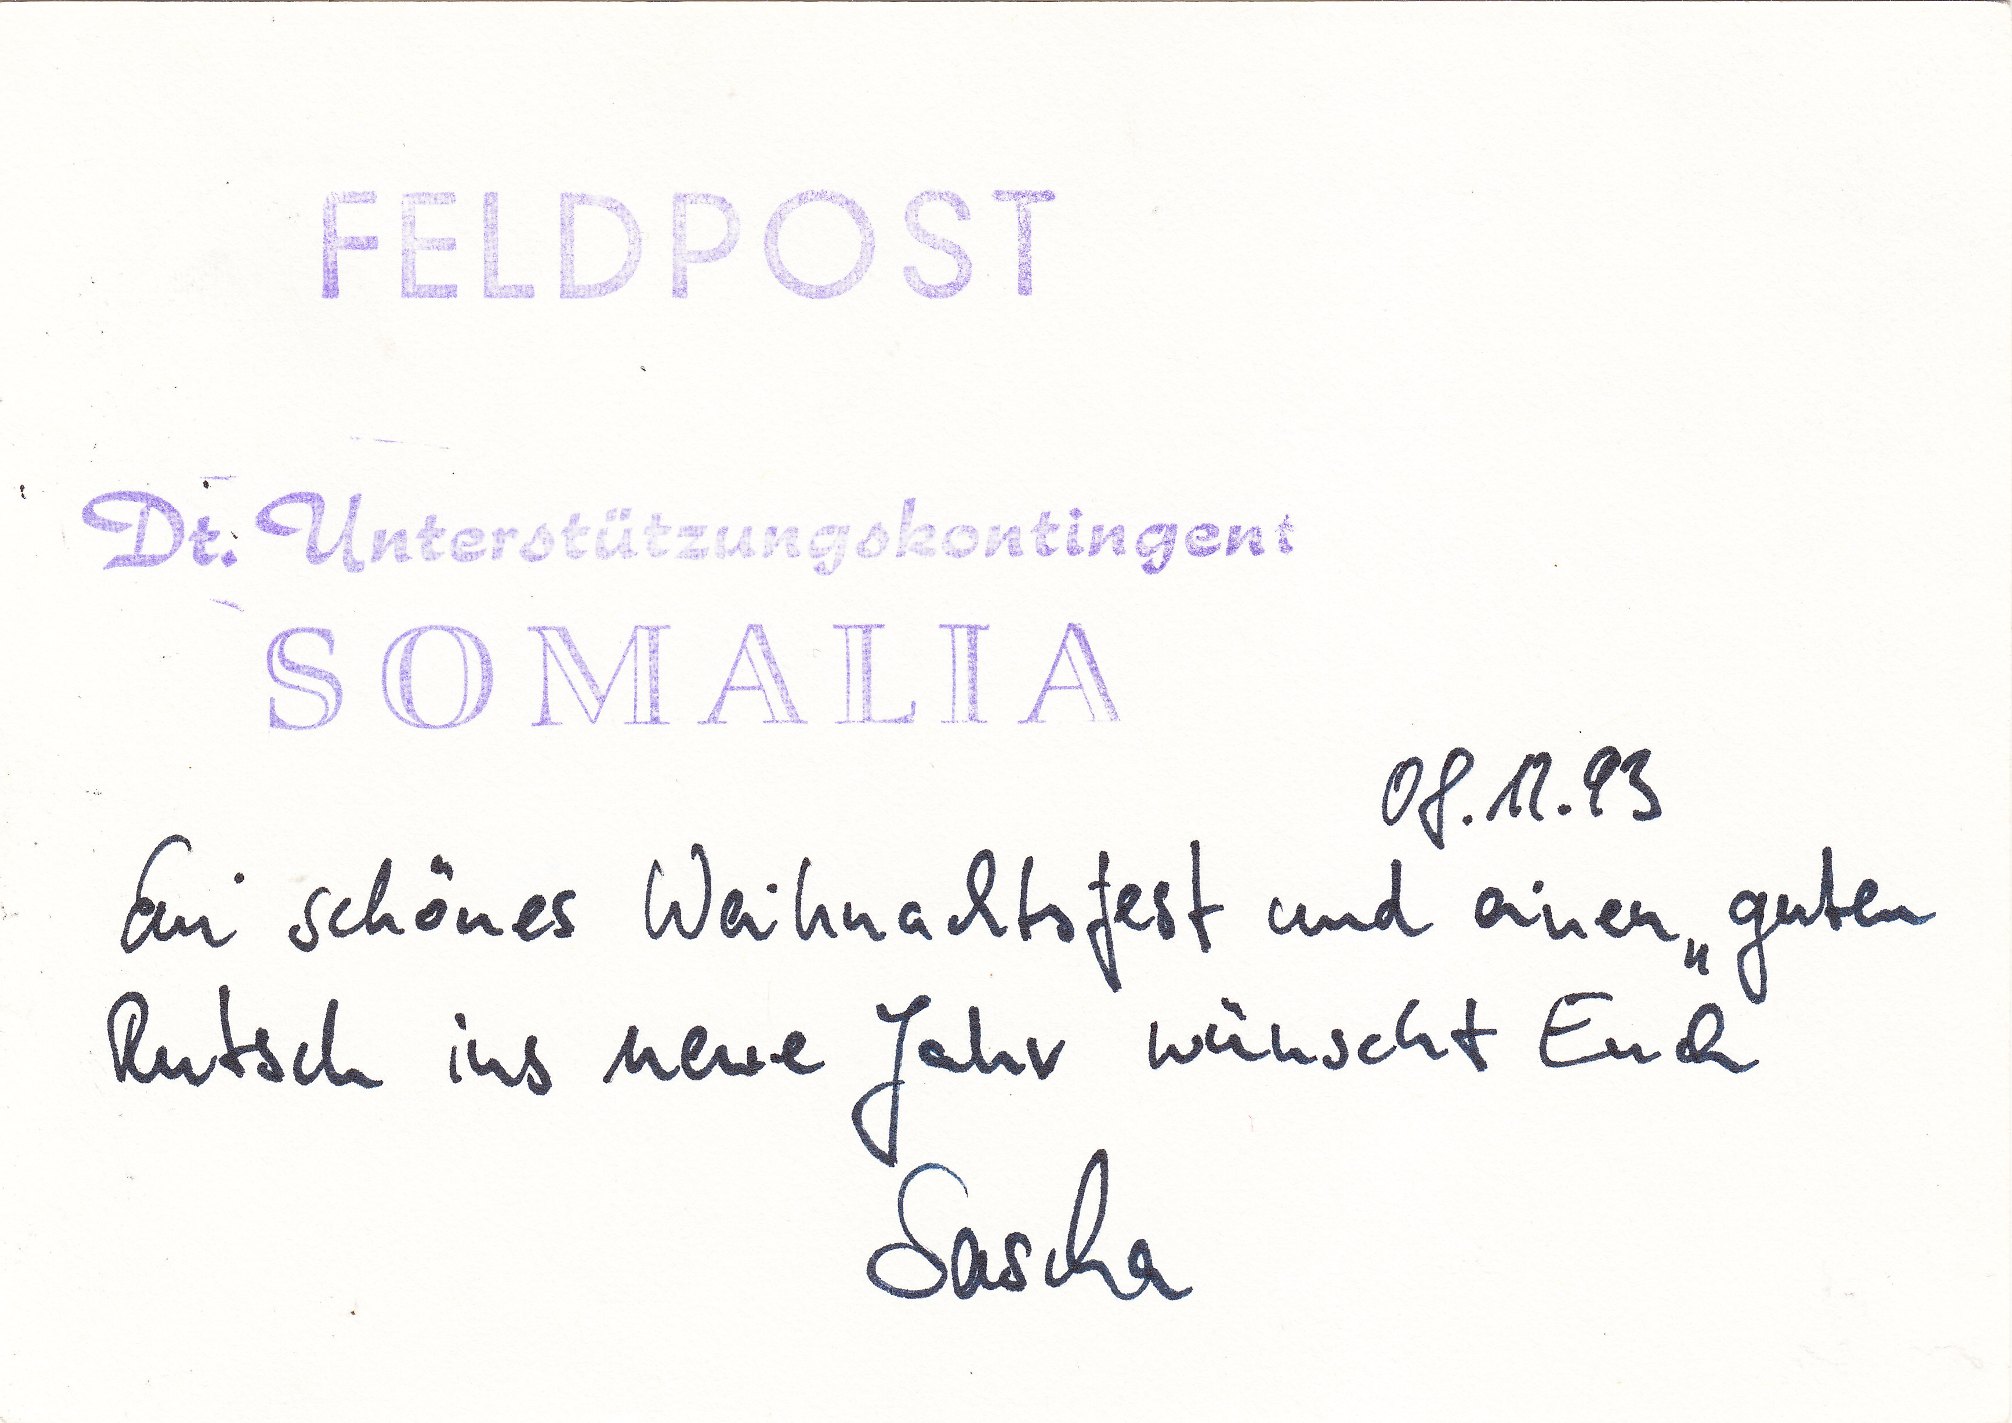 FELDPOST
Dt. Unterstützungskontingent
SOMALIA
08.12.93
Ein schönes Weihnachtsfest und einen „guten
Rutsch ins neue Jahr wünscht Euch
Sascha